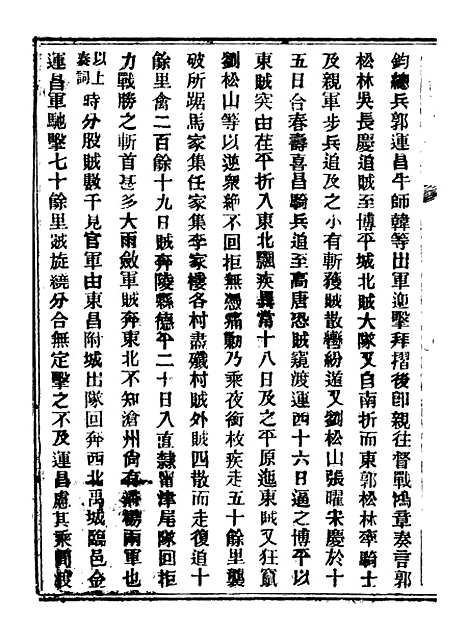 鈞總兵郭運昌牛師韓等出軍迎擊拜摺後卽親往督戰鴻章奏言郭
松林吳長慶追賊至博平城北賊大隊又自南折而東郭松林率騎士
及親軍步兵追及之小有斬獲賊散轡紛逃又劉松山張曜宋慶於十
五日合春壽喜昌騎兵追至高唐恐賊窺渡運西十六日逼之博平以
東賊突由茌平折入東北飄疾異常十八日及之平原迤東賊又狂竄
劉松山等以逆衆絶不回拒無憑痛勦乃乘夜銜枚疾走五十餘里襲
破所踞馬家集任家集李家樓各村盡殲村賊外賊四散而走復追十
餘里禽二百餘十九日賊奔陵縣德平二十日入直隸甯津尾隊回拒
力戰勝之斬首甚多大雨斂軍賊奔東北不知滄州尙有 兩軍也
以上奏詞時分股賊數千見官軍由東昌附城出隊回奔西北禹城臨邑金
運昌軍馳擊七十餘里 旋繞分合無定擊之不及運昌慮其乘間